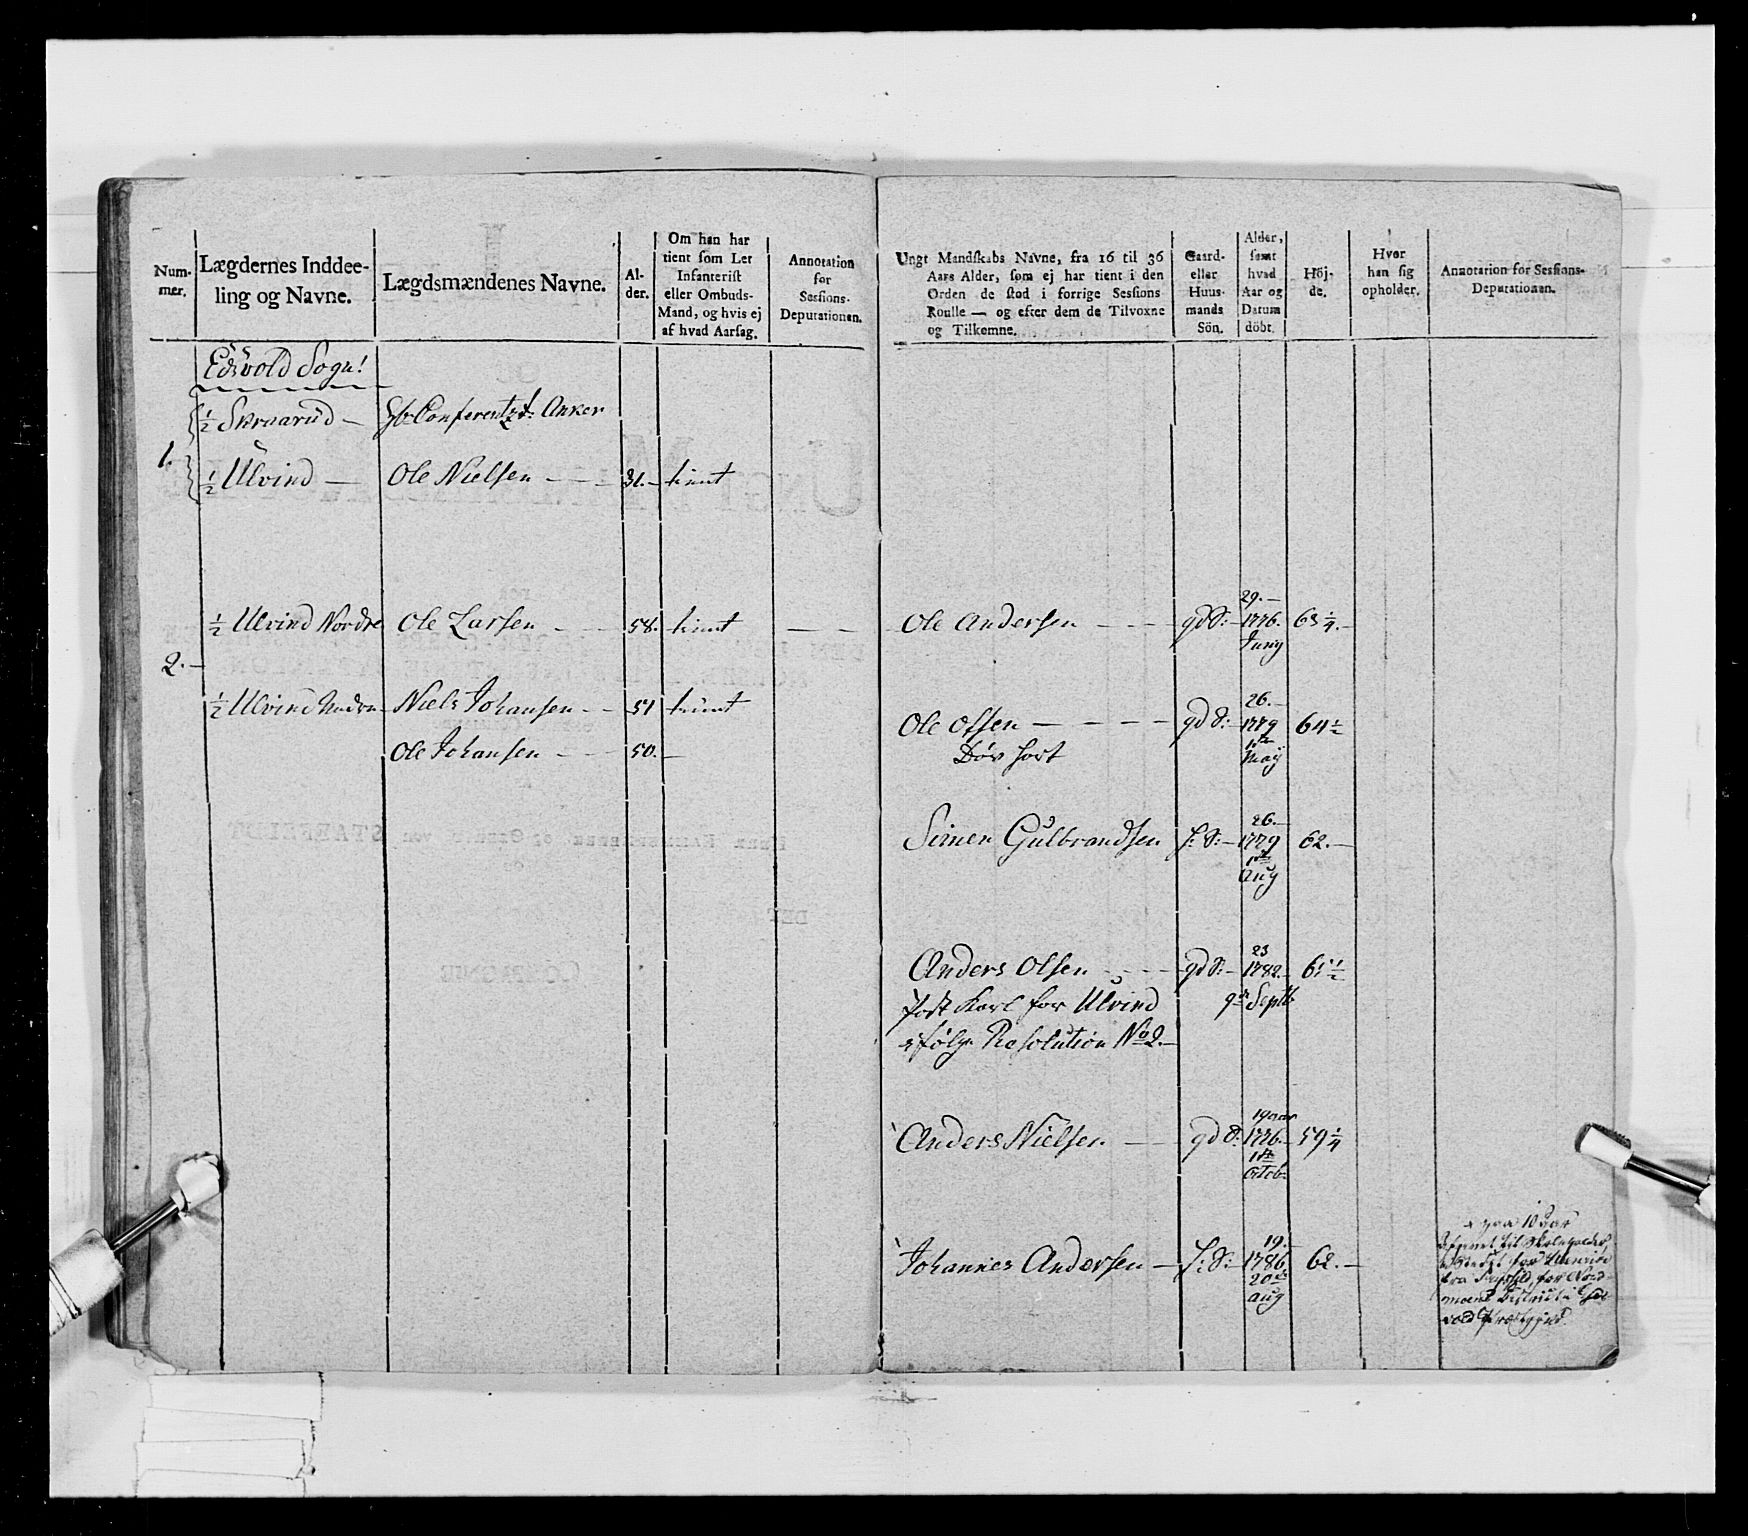 Num-
mer.
Lægdernes Inddee-
ling og Navne.
Lægdsmændenes Navne.
Al-
der.
Om han har
tient som Let
Infanterist
eller Ombuds-
Mand, og hvis ej
af hvad Aarsag.
Annotation
for
Sessions-
Deputationen.
Edsvold Sogn!
½ Skraarud — Hr Conferentzr: Anker
1.
½ Ulvind — Ole Nielsen — — 31. — tient
½ Ulvind Nordre Ole Larsen — — 58. tient — —
2. —
½ Ulvind Niels Johansen — — 51 tient
Ole Johansen — — 50. —
Ungt Mandskabs Navne, fra 16 til 36
Aars Alder, som ej har tient i den
Orden de stod i forrige Sessions
Roulle — og efter dem de Tilvoxne
og Tilkomne.
Gaard-
eller
Huus-
mands
Sön.
Alder,
samt
hvad
Aar og
Datum
döbt.
Höj-
de.
Hvor
han sig
opholder.
Annotation for Sessions-
Deputationen.
29. —
Ole Andersen — — — gd S: — 1776. 63 ¼. —
Juny
26. —
Ole Olsen — — — — gd S: — 1779 64 ½
Døv 1ste
May
26. —
Simen Gulbrandsen f: S: — 1779 62. —
1ste
Aug
23
Anders Olsen — — — gd S: — 1782. 61 ½
Karl for Ulvind 9de Septbr
ifølge Resolution No 2. —
19 aar
Anders Nielsen — — gd S: 1776. — 59 ¼
1ste
Octob:
19. —
Johannes Andersen — f: S: — 1786 62. —
20de
aug
paa 10 aar
til Skoleholder,
for
fra for Nord-
District i Eds-
vold